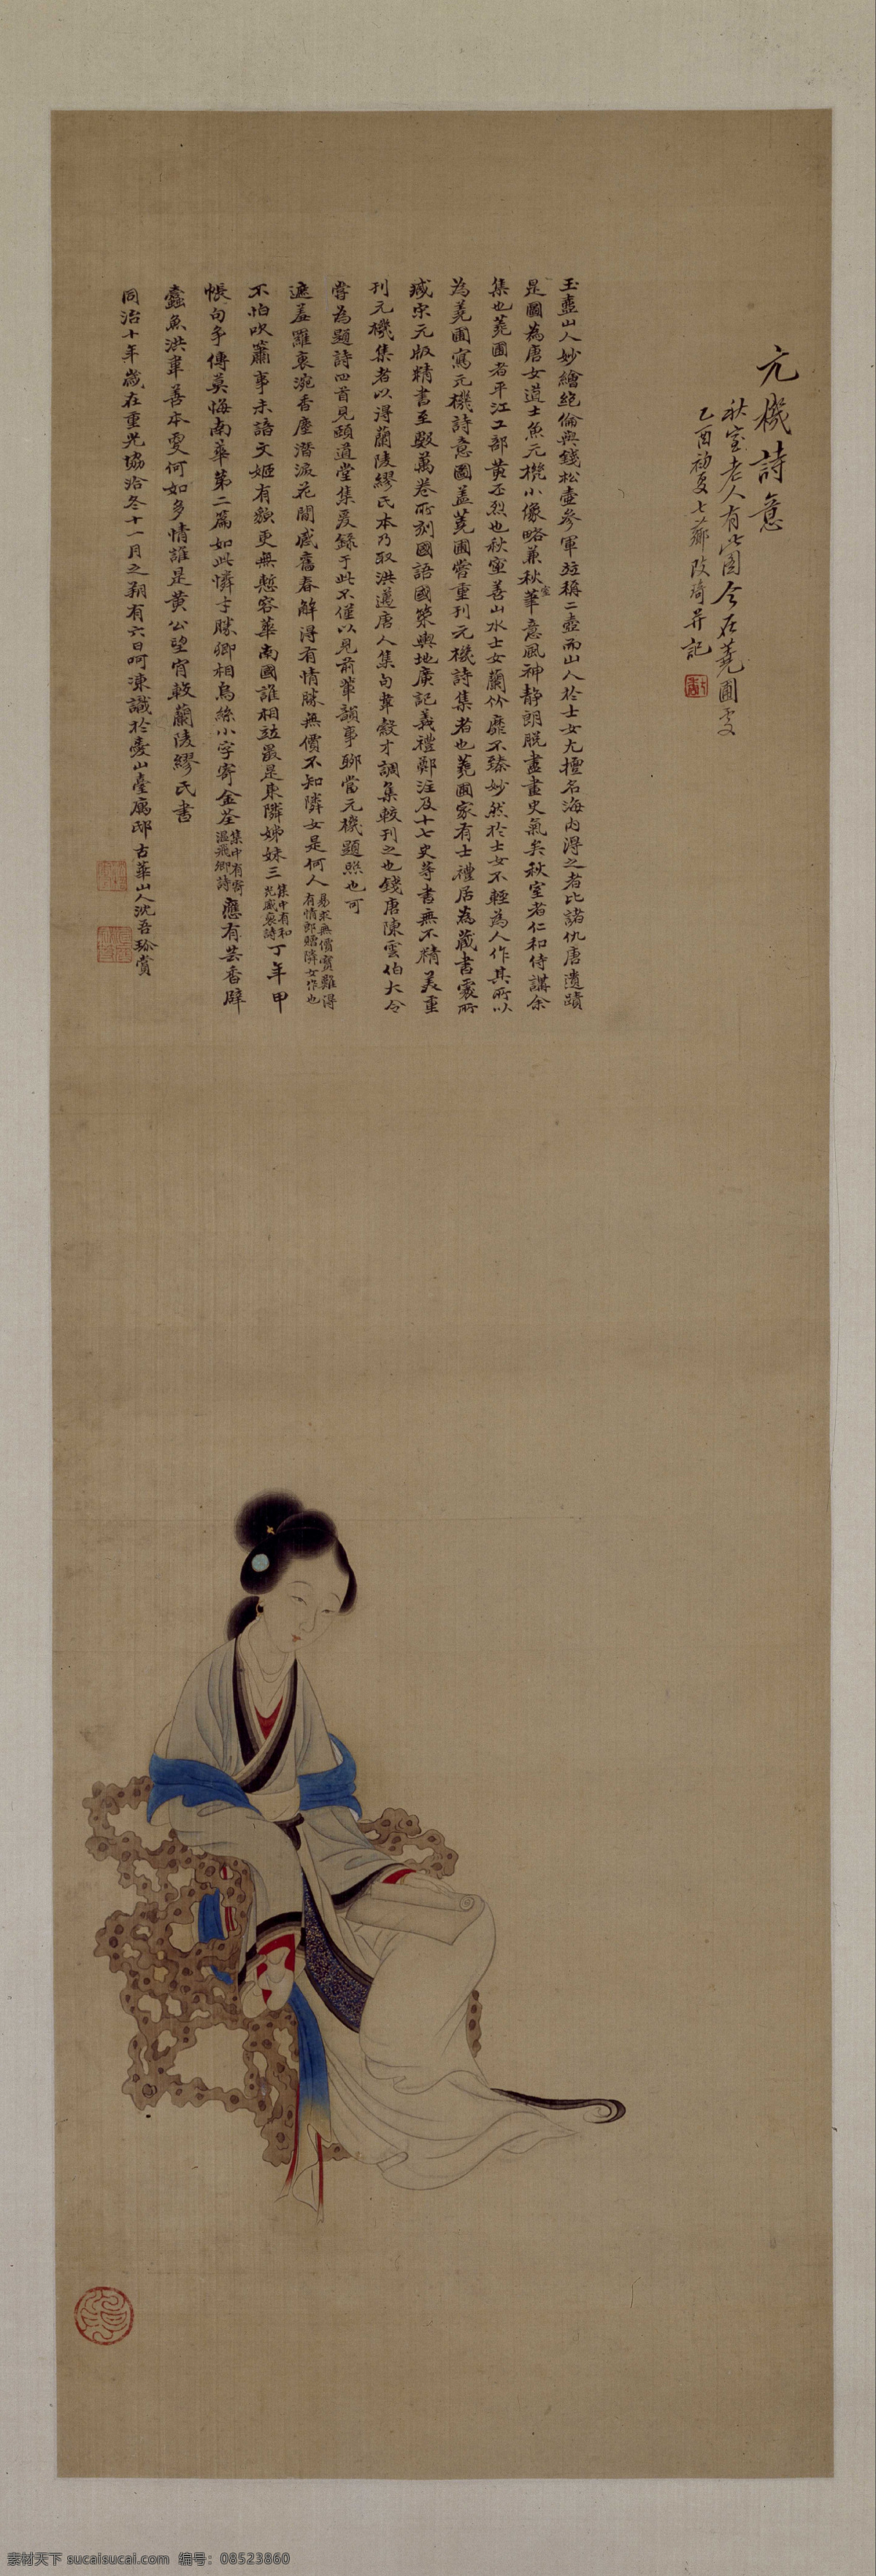 元機詩意
秋室老人有此圖今在蕘圃處
乙酉初夏七薌改琦并記
玉壺山人妙繪絕倫與錢松壺參軍竝稱二壺而山人於士女尤擅名海內得之者比諸仇唐遺蹟
是圖為唐女道士魚元機小像略兼秋室華意風神靜朗脫盡畫史氣矣秋室者仁和侍講余
集也蕘圃者平江工部黃丕烈也秋室善山水士女蘭竹靡不臻妙然於士女不輕為人作其所以
為蕘圃寫元機詩意圖蓋蕘圃嘗重刊元機詩集者也蕘圃家有士禮居為藏書處所
臧宋元版精書至數萬卷所刻國語國策輿地廣記義禮鄭注及十七史等書無不精美重
刊元機集者以得蘭陵繆氏本乃取洪邁唐人集句韋縠才調集較刊之也錢唐陳雲伯大令
嘗為題詩四首見頤道堂集爰錄于此不僅以見前輩韻事聊當元機題照也可
遮羞羅裏涴香塵潛淚花間感舊春解得有情勝無價不知隣女是何人易求無價寶難得有情郎贈隣女作也
不怕吹簫事未諳文姬有貌更無慙容華南國誰相竝最是東隣姊妹三集中有和光威裒詩丁年甲
帳句爭傳莫悔南華第二篇如此憐才勝卿相烏絲小字寄金荃集中有寄溫飛卿詩應有芸香辟
蠹魚洪韋善本更何如多情誰是黃公望肯較蘭陵繆氏書
同治十年歲在重光協洽冬十一月之朔有六日呵凍識於臺廨邸古華山人沈吾賞
素材天下 sucaisucai.com 编号：08523860